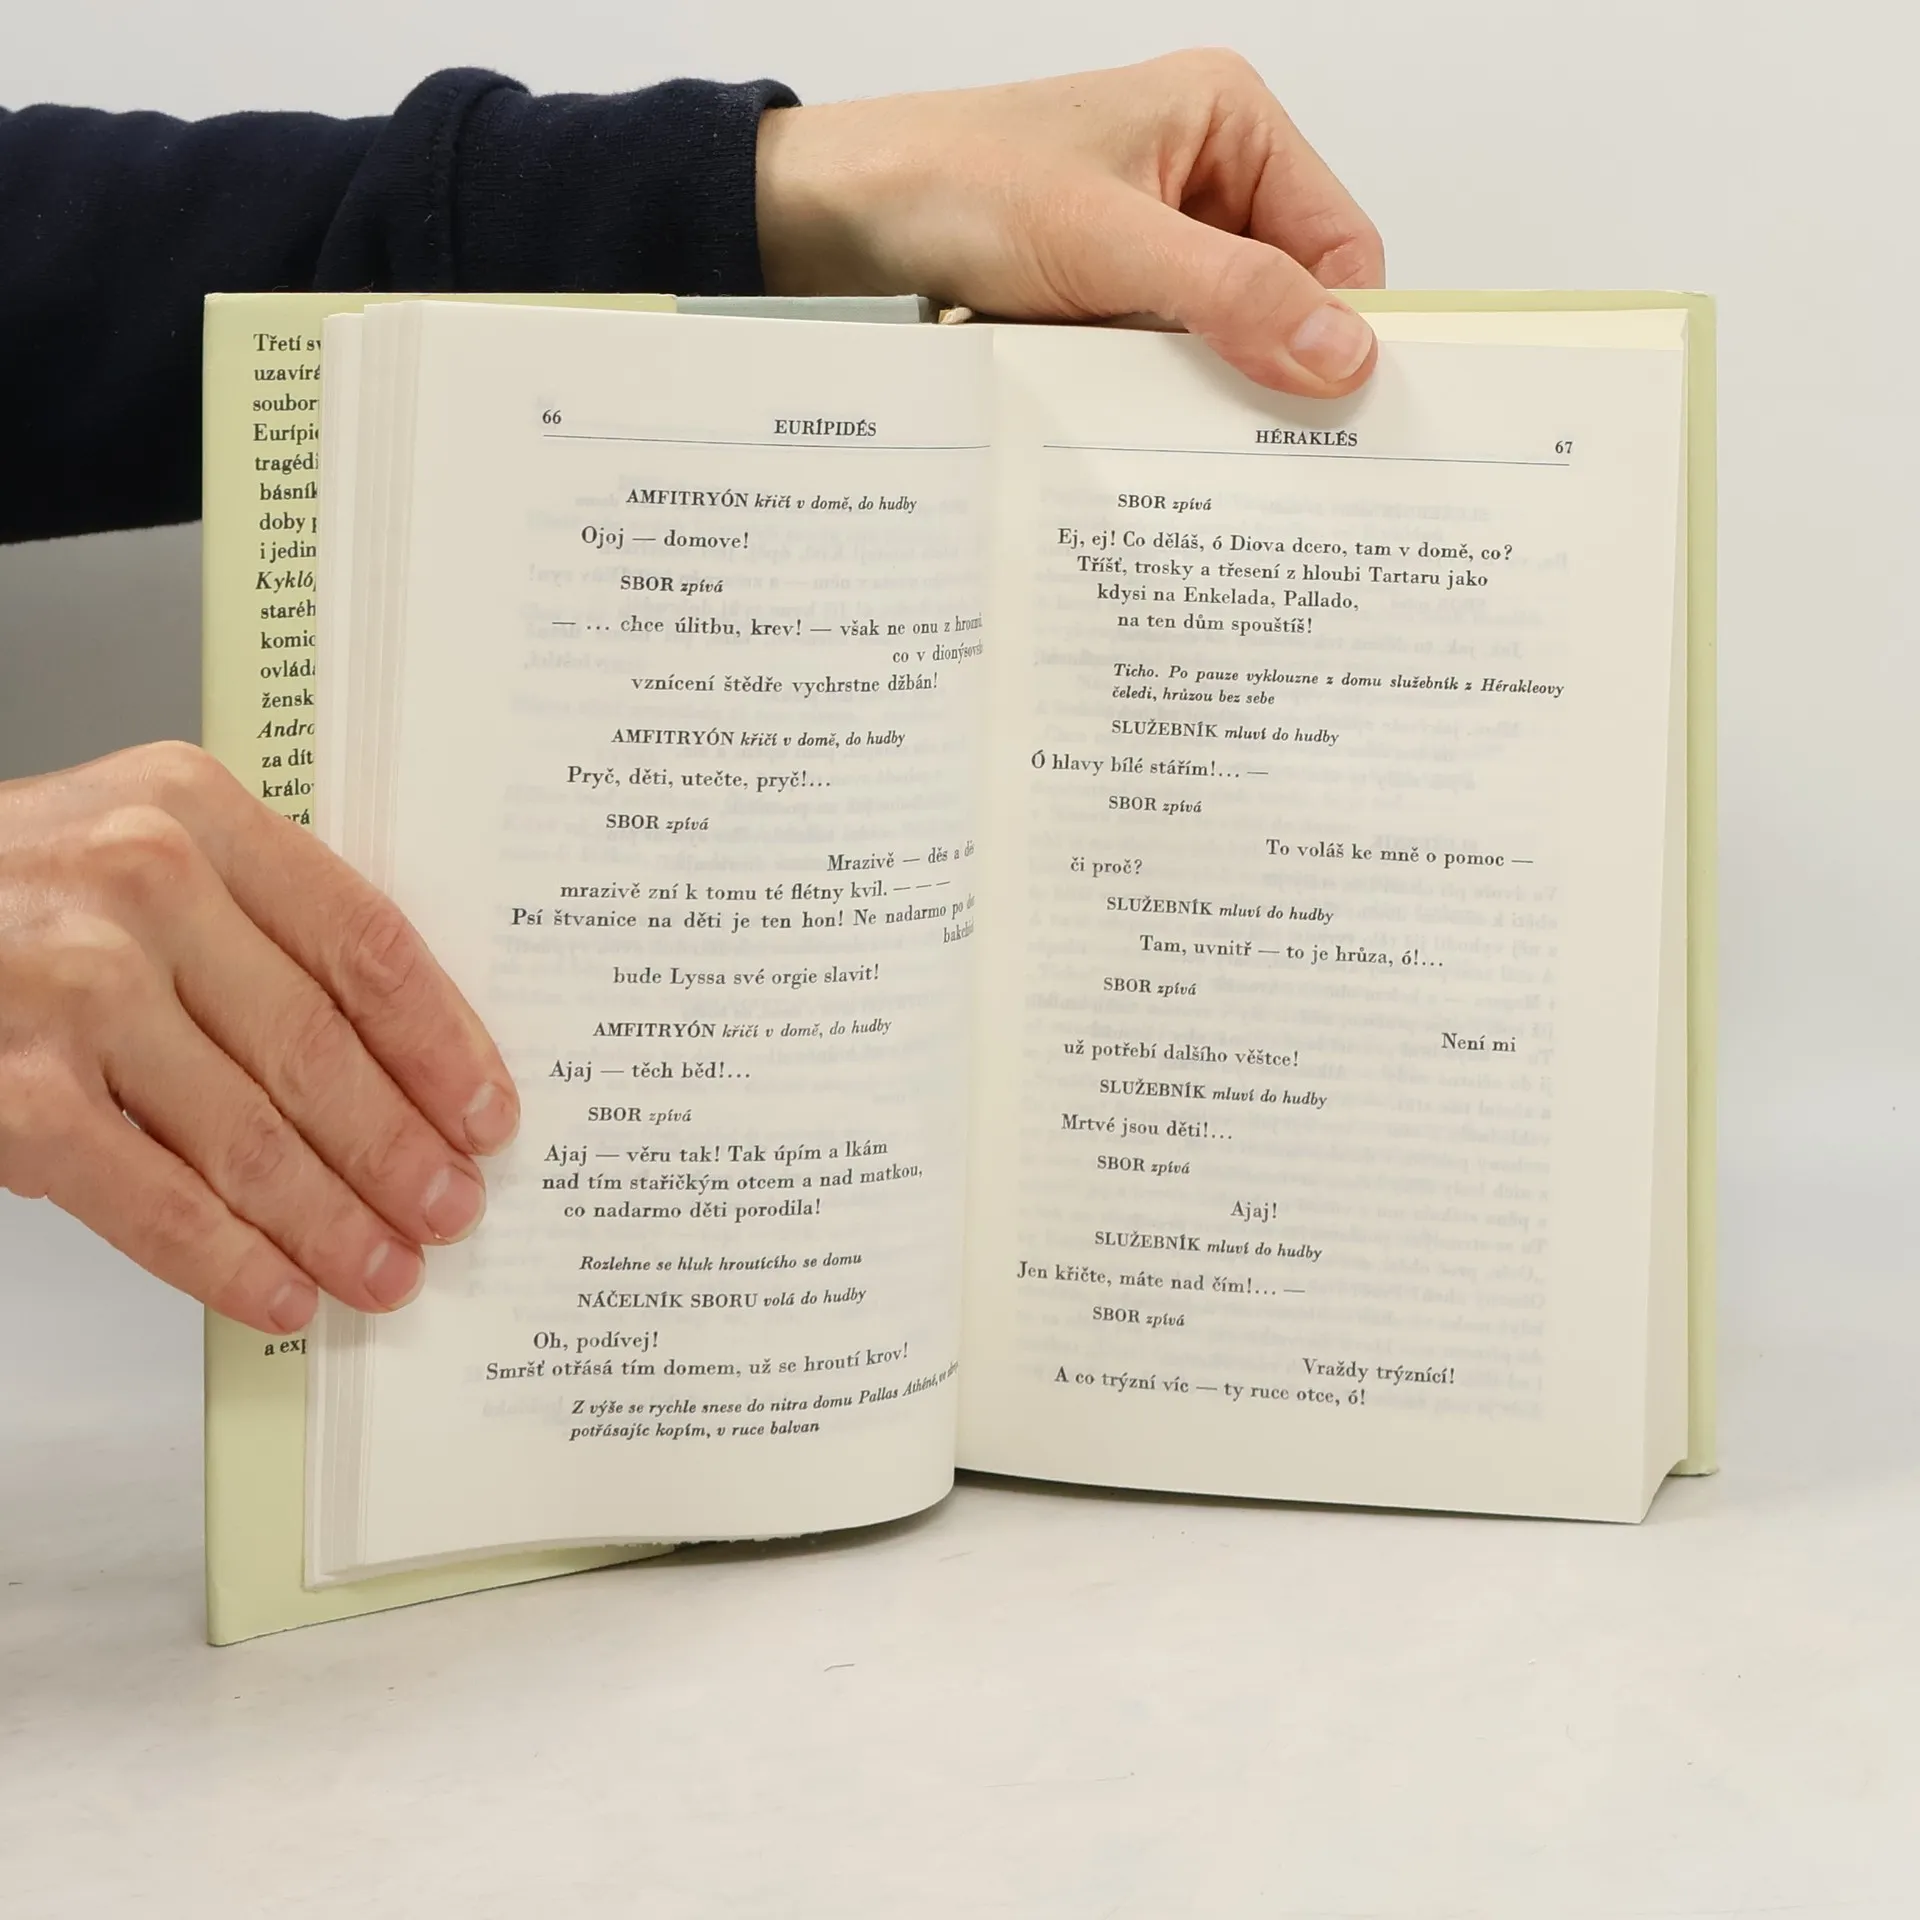 Třetí
uzavírá
soubor
tragédi
básník
doby
i jedin
Kykló
staréh
komic
ovládá
žensk
Andro
za dít
králo
a exp
66
EURÍPIDÉS
AMFITRYÓN křičí v domě, do hudby
Ojoj — domove!
SBOR zpívá
— ... chce úlitbu, krev! — však ne onu z
co v
vznícení štědře vychrstne džbán!
AMFITRYÓN křičí v domě, do hudby
Pryč, děti, utečte, pryč!...
SBOR zpívá
Mrazivě — děs a
mrazivě zní k tomu té flétny kvil. — — —
Psí štvanice na děti je ten hon! Ne nadarmo po
bude Lyssa své orgie slavit!
AMFITRYÓN křičí v domě, do hudby
Ajaj — těch běd!...
SBOR zpívá
Ajaj — věru tak! Tak úpím a lkám
nad tím stařičkým otcem a nad matkou,
co nadarmo děti porodila!
Rozlehne se hluk hroutícího se domu
NÁČELNÍK SBORU volá do hudby
Oh, podívej!
Smršť otřásá tím domem, už se hroutí krov!
Z výše se rychle snese do nitra domu Pallas Athéné, ve
potřásajíc kopím, v ruce balvan
HÉRAKLÉS
67
SBOR zpívá
Ej, ej! Co děláš, ó Diova dcero, tam v domě, co?
Tříšť, trosky a třesení z hloubi Tartaru jako
kdysi na Enkelada, Pallado,
na ten dům spouštíš!
Ticho. Po pauze vyklouzne z domu služebník z Hérakleovy
čeledi, hrůzou bez sebe
SLUŽEBNÍK mluví do hudby
Ó hlavy bílé stářím!... —
SBOR zpívá
To voláš ke mně o pomoc —
či proč?
SLUŽEBNÍK mluví do hudby
Tam, uvnitř — to je hrůza, ó!...
SBOR zpívá
Není mi
už potřebí dalšího věštce!
SLUŽEBNÍK mluví do hudby
Mrtvé jsou děti!...
SBOR zpívá
Ajaj!
SLUŽEBNÍK mluví do hudby
Jen křičte, máte nad čím!... —
SBOR zpívá
Vraždy trýznící!
A co trýzní víc — ty ruce otce, ó!